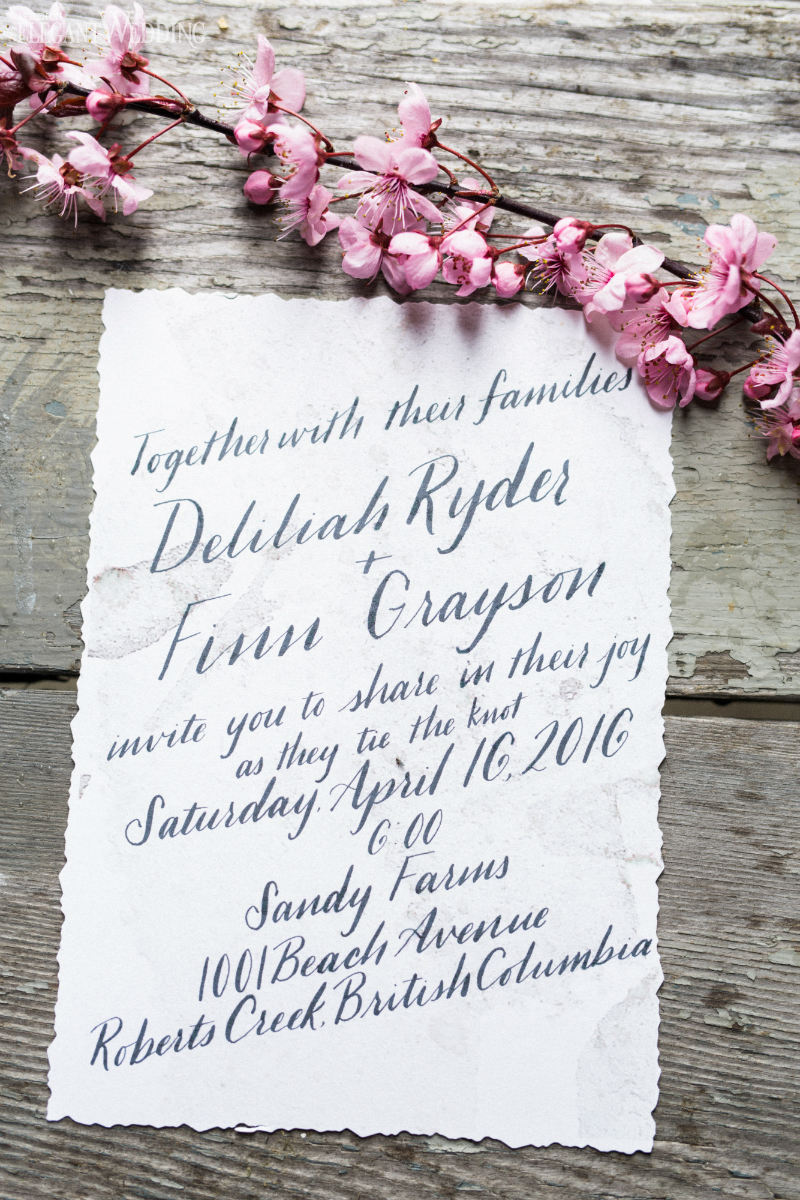 ELEGANT WEDDING
Together with their families
Deliliah Ryder
+
Finn Grayson
invite you to share in their joy
as they tie the knot
Saturday, April 16, 2016
6:00
Sandy Farms
1001 Beach Avenue
Roberts Creek, British Columbia